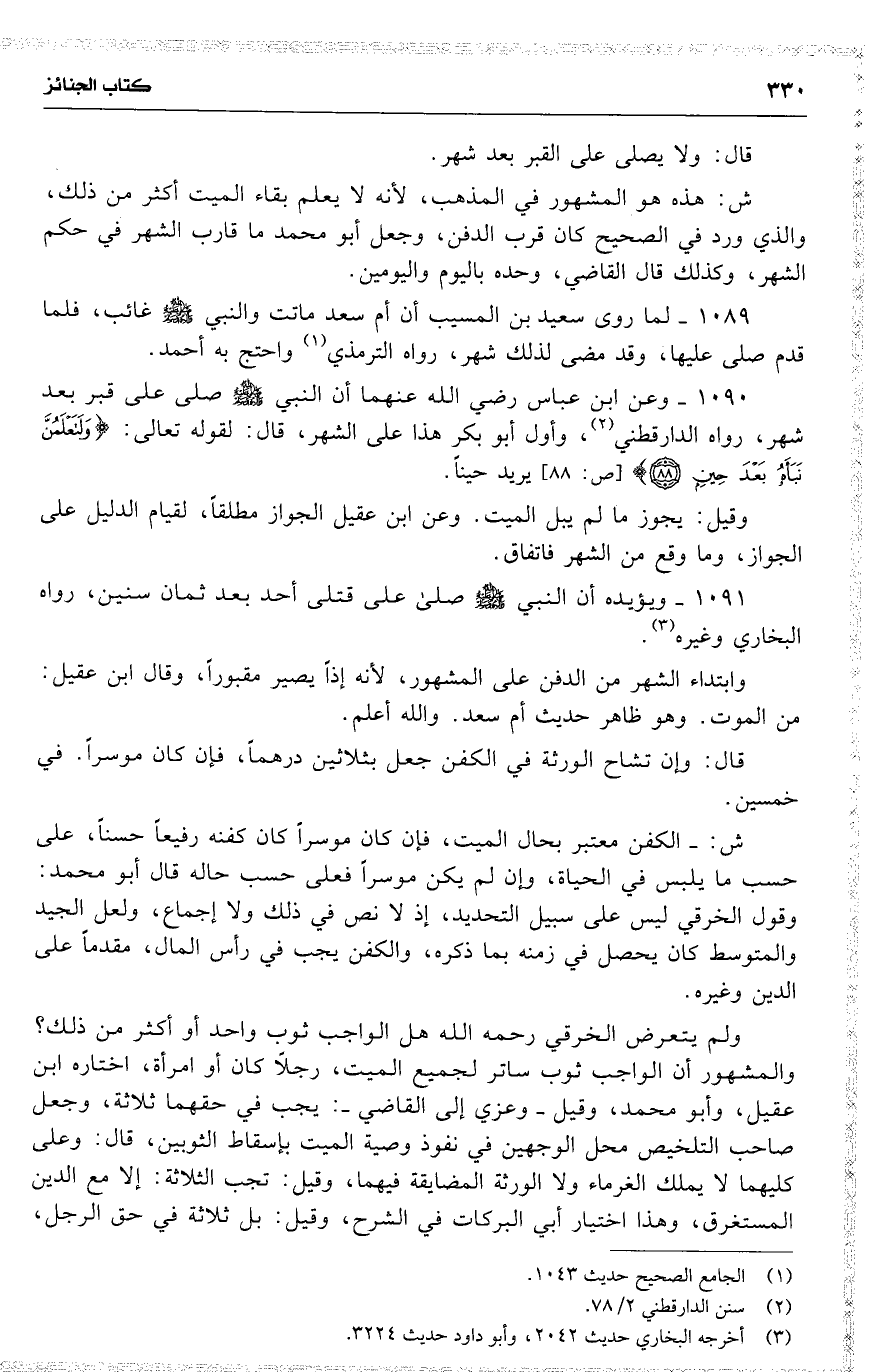 ٣٣٠
كتاب الجنائز
قال: ولا يصلى على القبر بعد شهر.
ش: هذه هو المشهور في المذهب، لأنه لا يعلم بقاء الميت أكثر من ذلك،
والذي ورد في الصحيح كان قرب الدفن، وجعل أبو محمد ما قارب الشهر في حكم
الشهر، وكذلك قال القاضي، وحده باليوم واليومين.
١٠٨٩ ـ لما روى سعيد بن المسيب أن أم سعد ماتت والنبي ﷺ غائب، فلما
قدم صلى عليها، وقد مضى لذلك شهر، رواه الترمذي(١) واحتج به أحمد.
١٠٩٠ ـ وعن ابن عباس رضي الله عنهما أن النبي ﷺ صلى على قبر بعد
شهر، رواه الدارقطني(٢)، وأول أبو بكر هذا على الشهر، قال: لقوله تعالى: ﴿وَلَتَعْلَمُنَّ
نَبَأَهُ بَعْدَ حِينٍ ٨٨﴾ [ص: ٨٨] يريد حيناً.
وقيل: يجوز ما لم يبل الميت. وعن ابن عقيل الجواز مطلقاً، لقيام الدليل على
الجواز، وما وقع من الشهر فاتفاق.
١٠٩١ ـ ويؤيده أن النبي ﷺ صلىٰ على قتلى أحد بعد ثمان سنين، رواه
البخاري وغيره(٣).
وابتداء الشهر من الدفن على المشهور، لأنه إذاً يصير مقبوراً، وقال ابن عقيل:
من الموت. وهو ظاهر حديث أم سعد. والله أعلم.
قال: وإن تشاح الورثة في الكفن جعل بثلاثين درهماً، فإن كان موسراً. في
خمسين.
ش: ـ الكفن معتبر بحال الميت، فإن كان موسراً كان كفنه رفيعاً حسناً، على
حسب ما يلبس في الحياة، وإن لم يكن موسراً فعلى حسب حاله قال أبو محمد:
وقول الخرقي ليس على سبيل التحديد، إذ لا نص في ذلك ولا إجماع، ولعل الجيد
والمتوسط كان يحصل في زمنه بما ذكره، والكفن يجب في رأس المال، مقدماً على
الدين وغيره.
ولم يتعرض الخرقي رحمه الله هل الواجب ثوب واحد أو أكثر من ذلك؟
والمشهور أن الواجب ثوب ساتر لجميع الميت، رجلاً كان أو امرأة، اختاره ابن
عقيل، وأبو محمد، وقيل ـ وعزي إلى القاضي ـ: يجب في حقهما ثلاثة، وجعل
صاحب التلخيص محل الوجهين في نفوذ وصية الميت بإسقاط الثوبين، قال: وعلى
كليهما لا يملك الغرماء ولا الورثة المضايقة فيهما، وقيل: تجب الثلاثة: إلا مع الدين
المستغرق، وهذا اختيار أبي البركات في الشرح، وقيل: بل ثلاثة في حق الرجل،
(١) الجامع الصحيح حديث ١٠٤٣.
(٢) سنن الدارقطني ٢/ ٧٨.
(٣) أخرجه البخاري حديث ٢٠٤٢، وأبو داود حديث ٣٢٢٤.